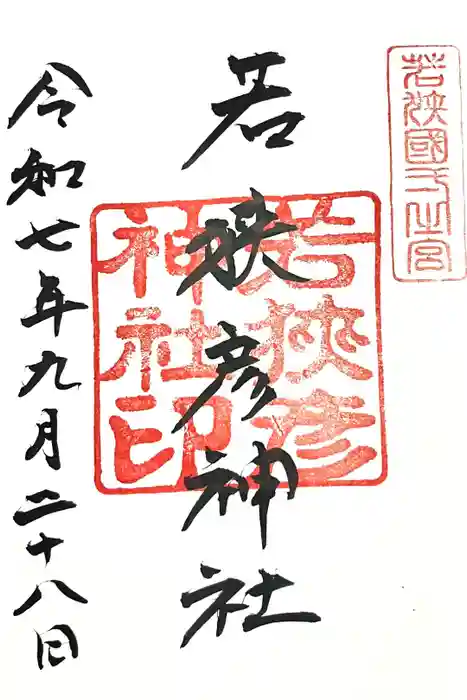 若狹國一之宮
若狭彦神社
若狭彦
神社印
令和七年九月二十八日